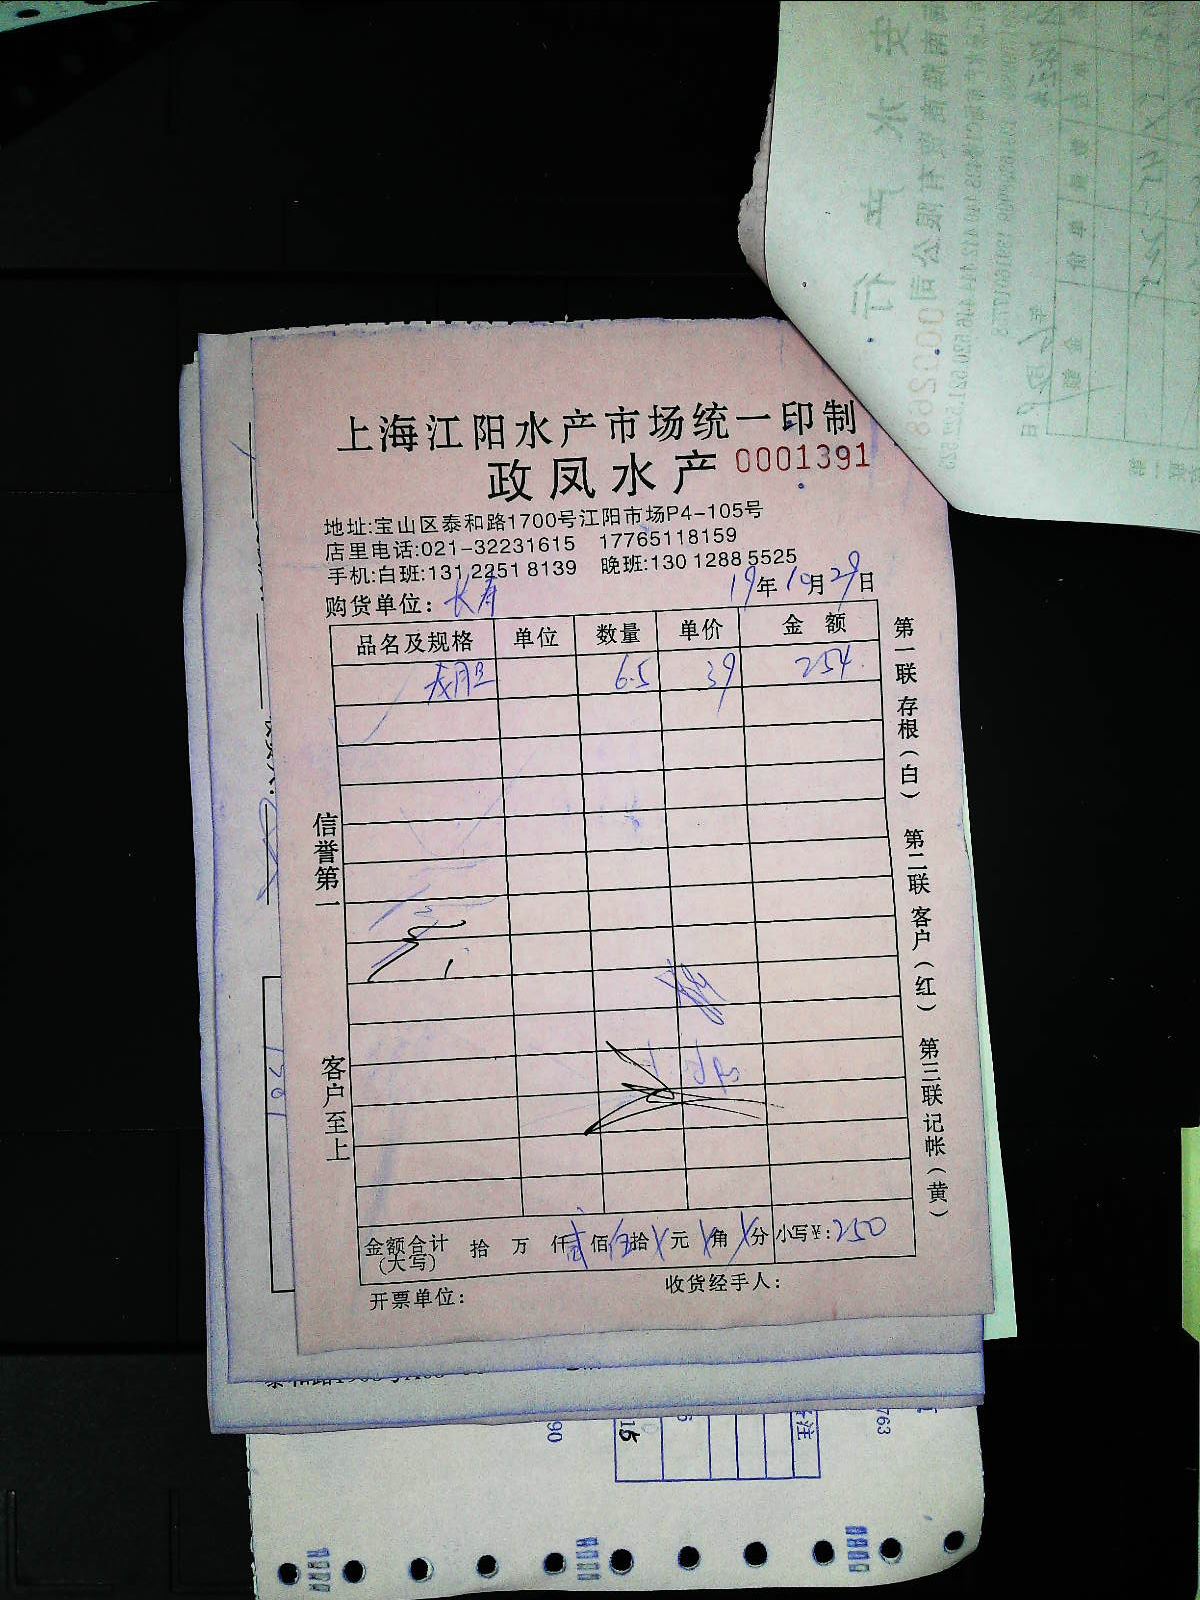 上海江阳水产市场统一印制
政凤水产 0001391
地址:宝山区泰和路1700号江阳市场P4-105号
店里电话:021-32231615 17765118159
手机:白班:131 2251 8139 晚班:130 1288 5525
购货单位: 长寿 19年10月29日
品名及规格 单位 数量 单价 金额
6.5 39 254
信誉第一
客户至上
第一联存根(白) 第二联客户(红) 第三联记帐(黄)
金额合计(大写) 拾 万 仟 贰佰 伍拾 元 角 分 小写¥:250
开票单位: 收货经手人: